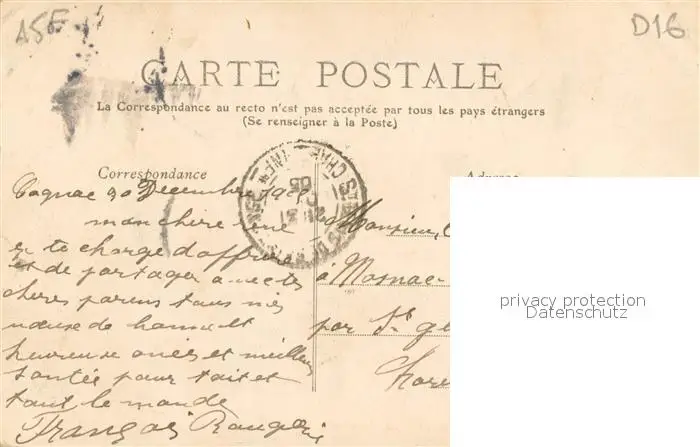 ASF
D16
CARTE POSTALE
La Correspondance au recto n'est pas acceptée par tous les pays étrangers
(Se renseigner à la Poste)
Correspondance
Cognac 30 Decembre
mon chere
je te charge d'offrire
et de partager avec tes
chers parens tous mes
voeuse de bonne et
heureuse anées et meilleur
santée pour toit et
tout le monde
François
Adresse
Monsieur
à Mosnac
par St Ge
privacy protection
Datenschutz